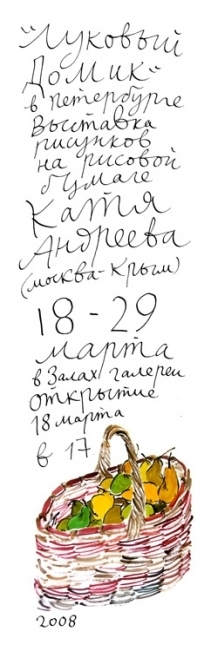 "Луковый
Домик"
в петербурге
Выставка
рисунков
на рисовой
бумаге
Катя
Андреева
(москва-Крым)
18-29
марта
в Залах галереи
открытие
18 марта
в 17
2008